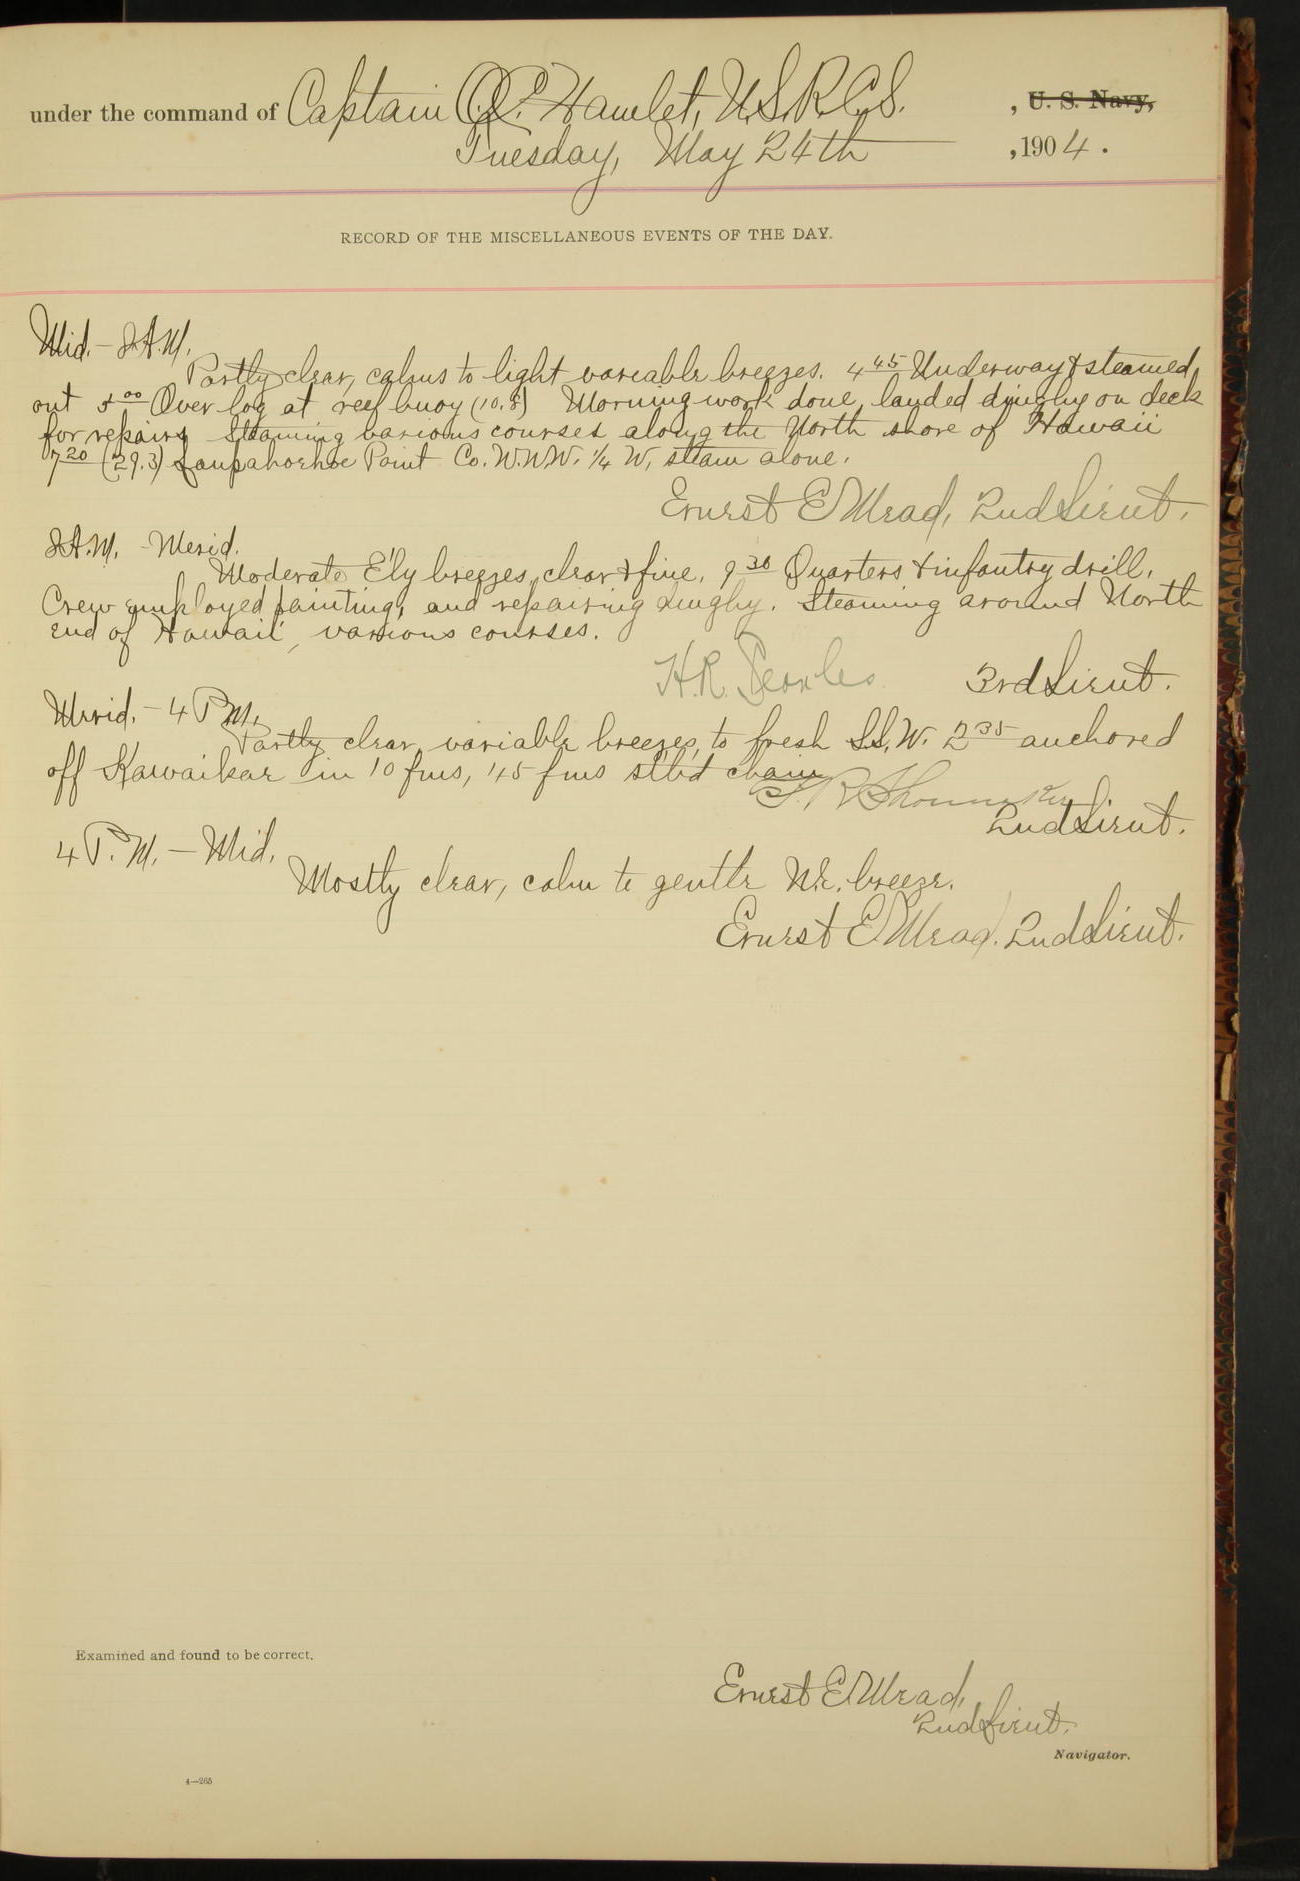 under the command of Captain O.C. Hamlet, U.S.R.C.S. , U. S. Navy,
Tuesday, May 24th , 1904.
RECORD OF THE MISCELLANEOUS EVENTS OF THE DAY.
Mid. - 8 A.M.
Partly clear, calms to light variable breezes. 4 45 Underway & steamed
out 5 00 Over log at reef buoy (10.8) Morning work done, landed dinghy on deck
for repairs Steaming various courses along the North shore of Hawaii
7 20 (29.3) Laupahoehoe Point Co. W.N.W. 1/4 W, steam alone.
Ernest E Mead, 2nd Lieut.
8 A.M. - Merid.
Moderate E'ly breezes, clear & fine. 9 30 Quarters & infantry drill.
Crew employed painting, and repairing dinghy. Steaming around North
end of Hawaii, various courses.
H.R. Searles 3rd Lieut.
Merid. - 4 P.M.
Partly clear, variable breezes, to fresh S.S.W. 2 35 anchored
off Kawaihae in 10 fms, 45 fms stb'd chain
2nd Lieut.
4 P.M. - Mid.
Mostly clear, calm to gentle N.E. breeze.
Ernest E. Mead. 2nd Lieut.
Examined and found to be correct.
Ernest E. Mead,
2nd Lieut.
Navigator.
4—265